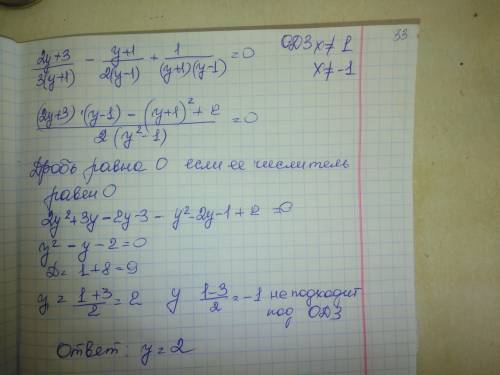 33
(2y+3)/(3(y+1)) - (y+1)/(2(y-1)) + 1/((y+1)(y-1)) = 0 ОДЗ x≠1
x≠-1
((2y+3)·(y-1) - (y+1)² + 2)/(2(y²-1)) = 0
Дробь равна 0 если ее числитель
равен 0
2y²+3y-2y-3-y²-2y-1+2=0
y²-y-2=0
D=1+8=9
y=(1+3)/2=2 y (1-3)/2=-1 не подходит
под ОДЗ
Ответ: y=2